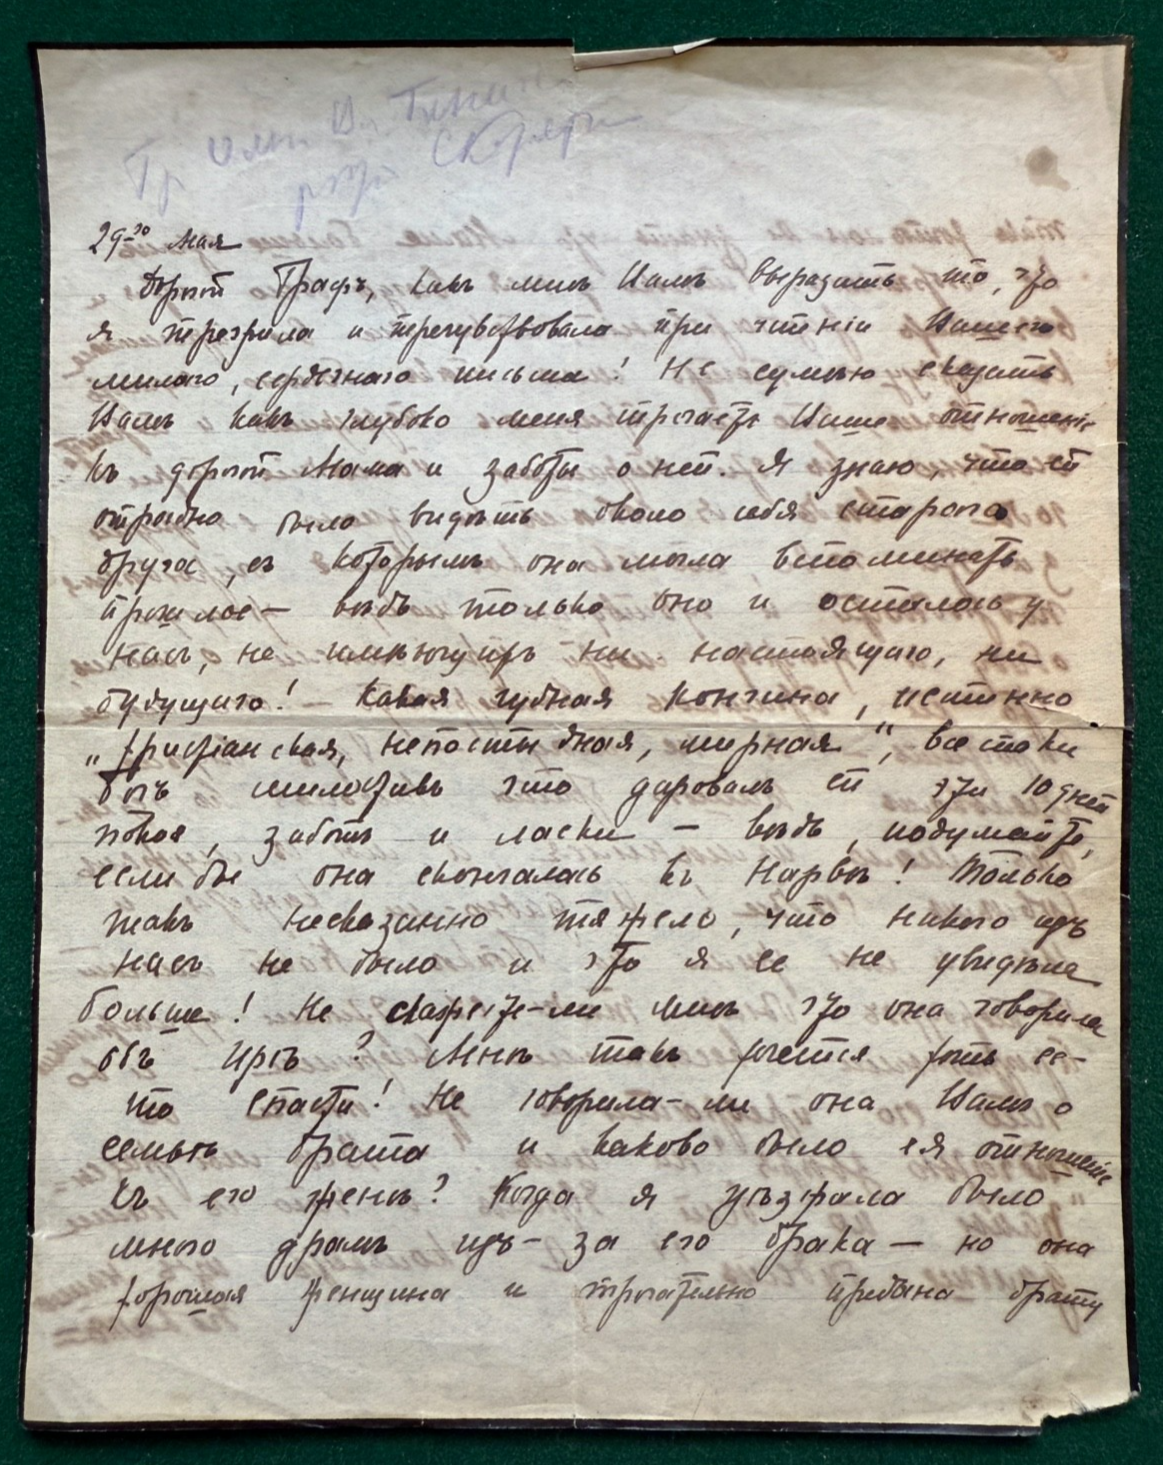 29-го Мая
Дорогой Графъ, какъ мнѣ Вамъ выразить то, что
я перезрила и перечувствовала при чтеніи Вашего
милаго, сердечнаго письма! Не сумѣю сказать
Вамъ какъ глубоко меня трогаетъ Ваше отношеніе
къ дорогой Мама и заботы о ней. Я знаю, что ей
отрадно было видѣть около себя стараго
друга, съ которымъ она могла вспоминать
прошлое — вѣдь только оно и осталось у
насъ, не имѣющихъ ни настоящаго, ни
будущаго! — Какая чудная кончина, истинно
„христіанская, непостыдная, мирная", все таки
Богъ милостивъ что даровалъ ей эти 10 дней
покоя, заботъ и ласки — вѣдь, подумайте,
если бы она скончалась въ Нарвѣ! Только
такъ несказанно тяжело, что никого изъ
насъ не было и что я ее не увидѣла
больше! Не скажете-ли мнѣ что она говорила
объ Ирѣ? Мнѣ такъ хочется хоть ее-
то спасти! Не говорила-ли она Вамъ о
семьѣ брата и каково было ея отношеніе
къ его женѣ? Когда я уѣзжала было
много драмъ изъ-за его брака — но она
хорошая женщина и трогательно предана брату